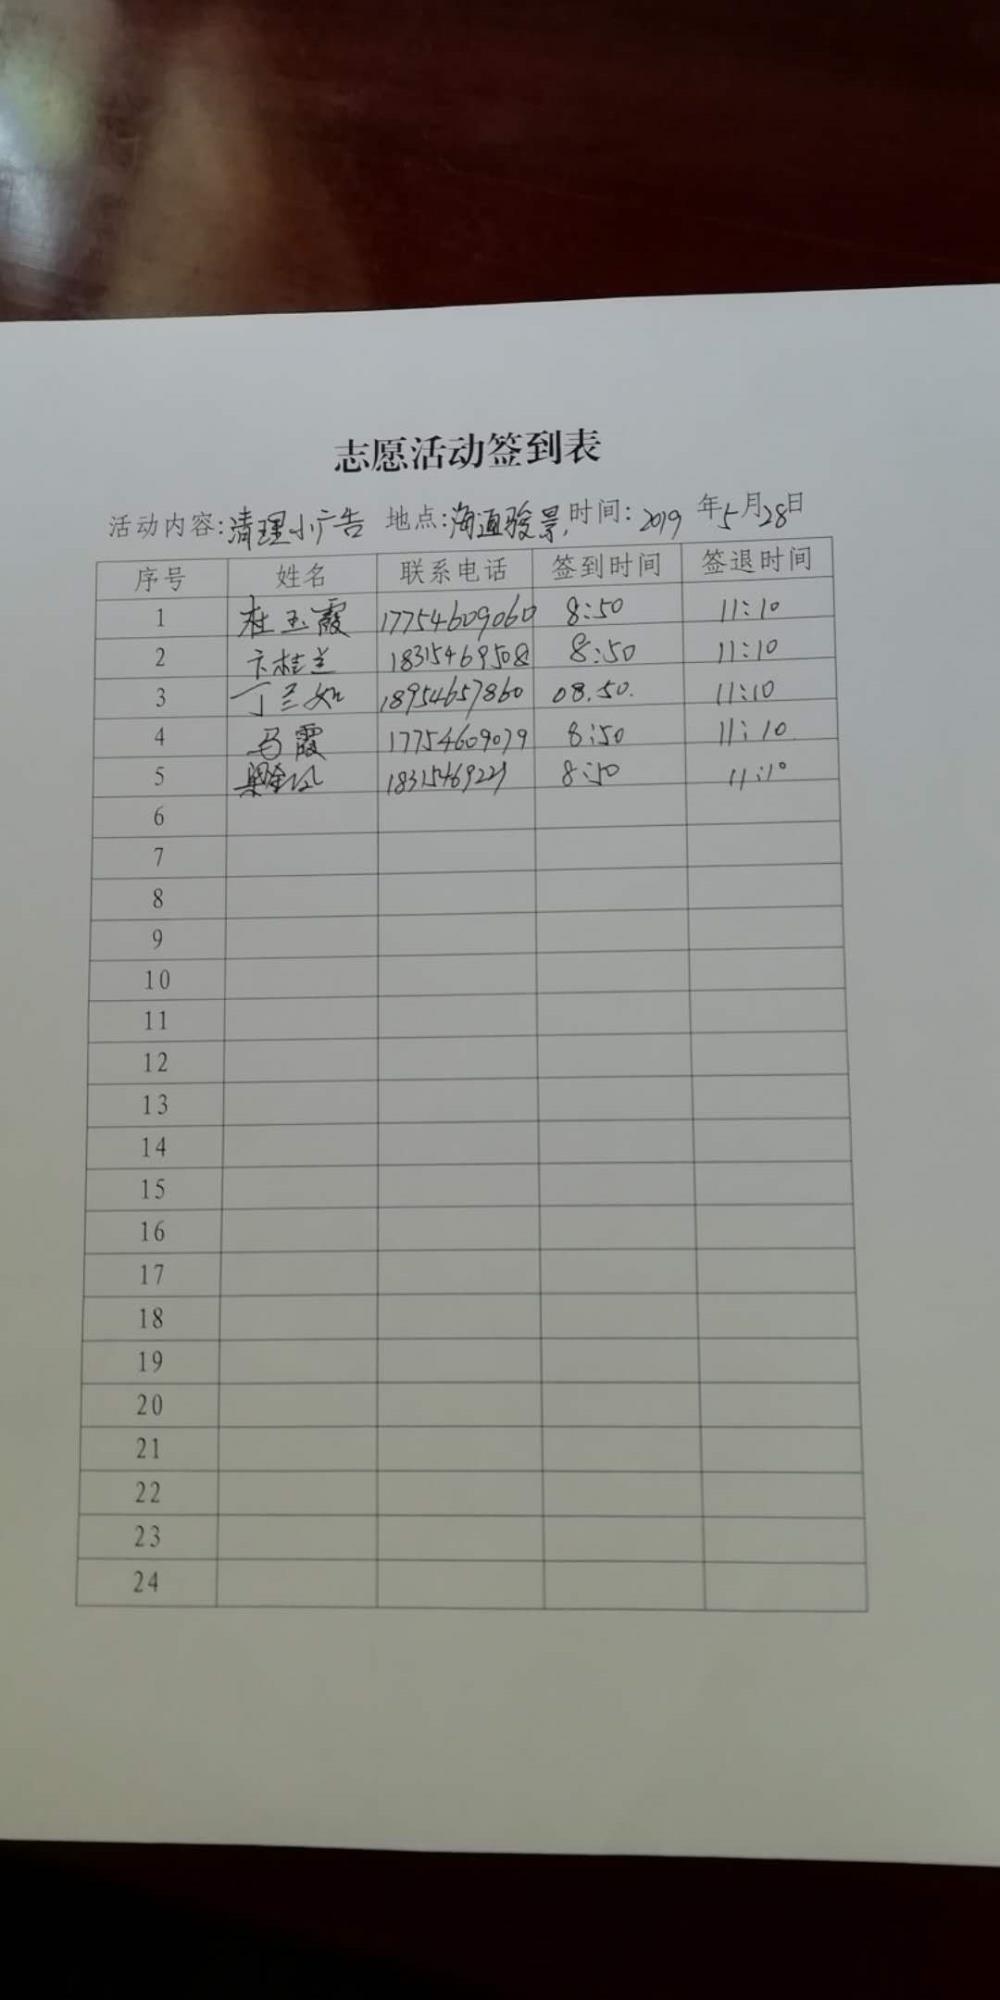 志愿活动签到表
活动内容:清理小广告 地点:海通骏景, 时间: 2019 年5月28日
序号 姓名 联系电话 签到时间 签退时间
1 杜玉霞 17754609060 8:50 11:10
2 卞桂兰 18315469508 8:50 11:10
3 丁兰如 18954657860 08.50. 11:10
4 马霞 17754609079 8:50 11:10
5 8:50 11:10
6
7
8
9
10
11
12
13
14
15
16
17
18
19
20
21
22
23
24